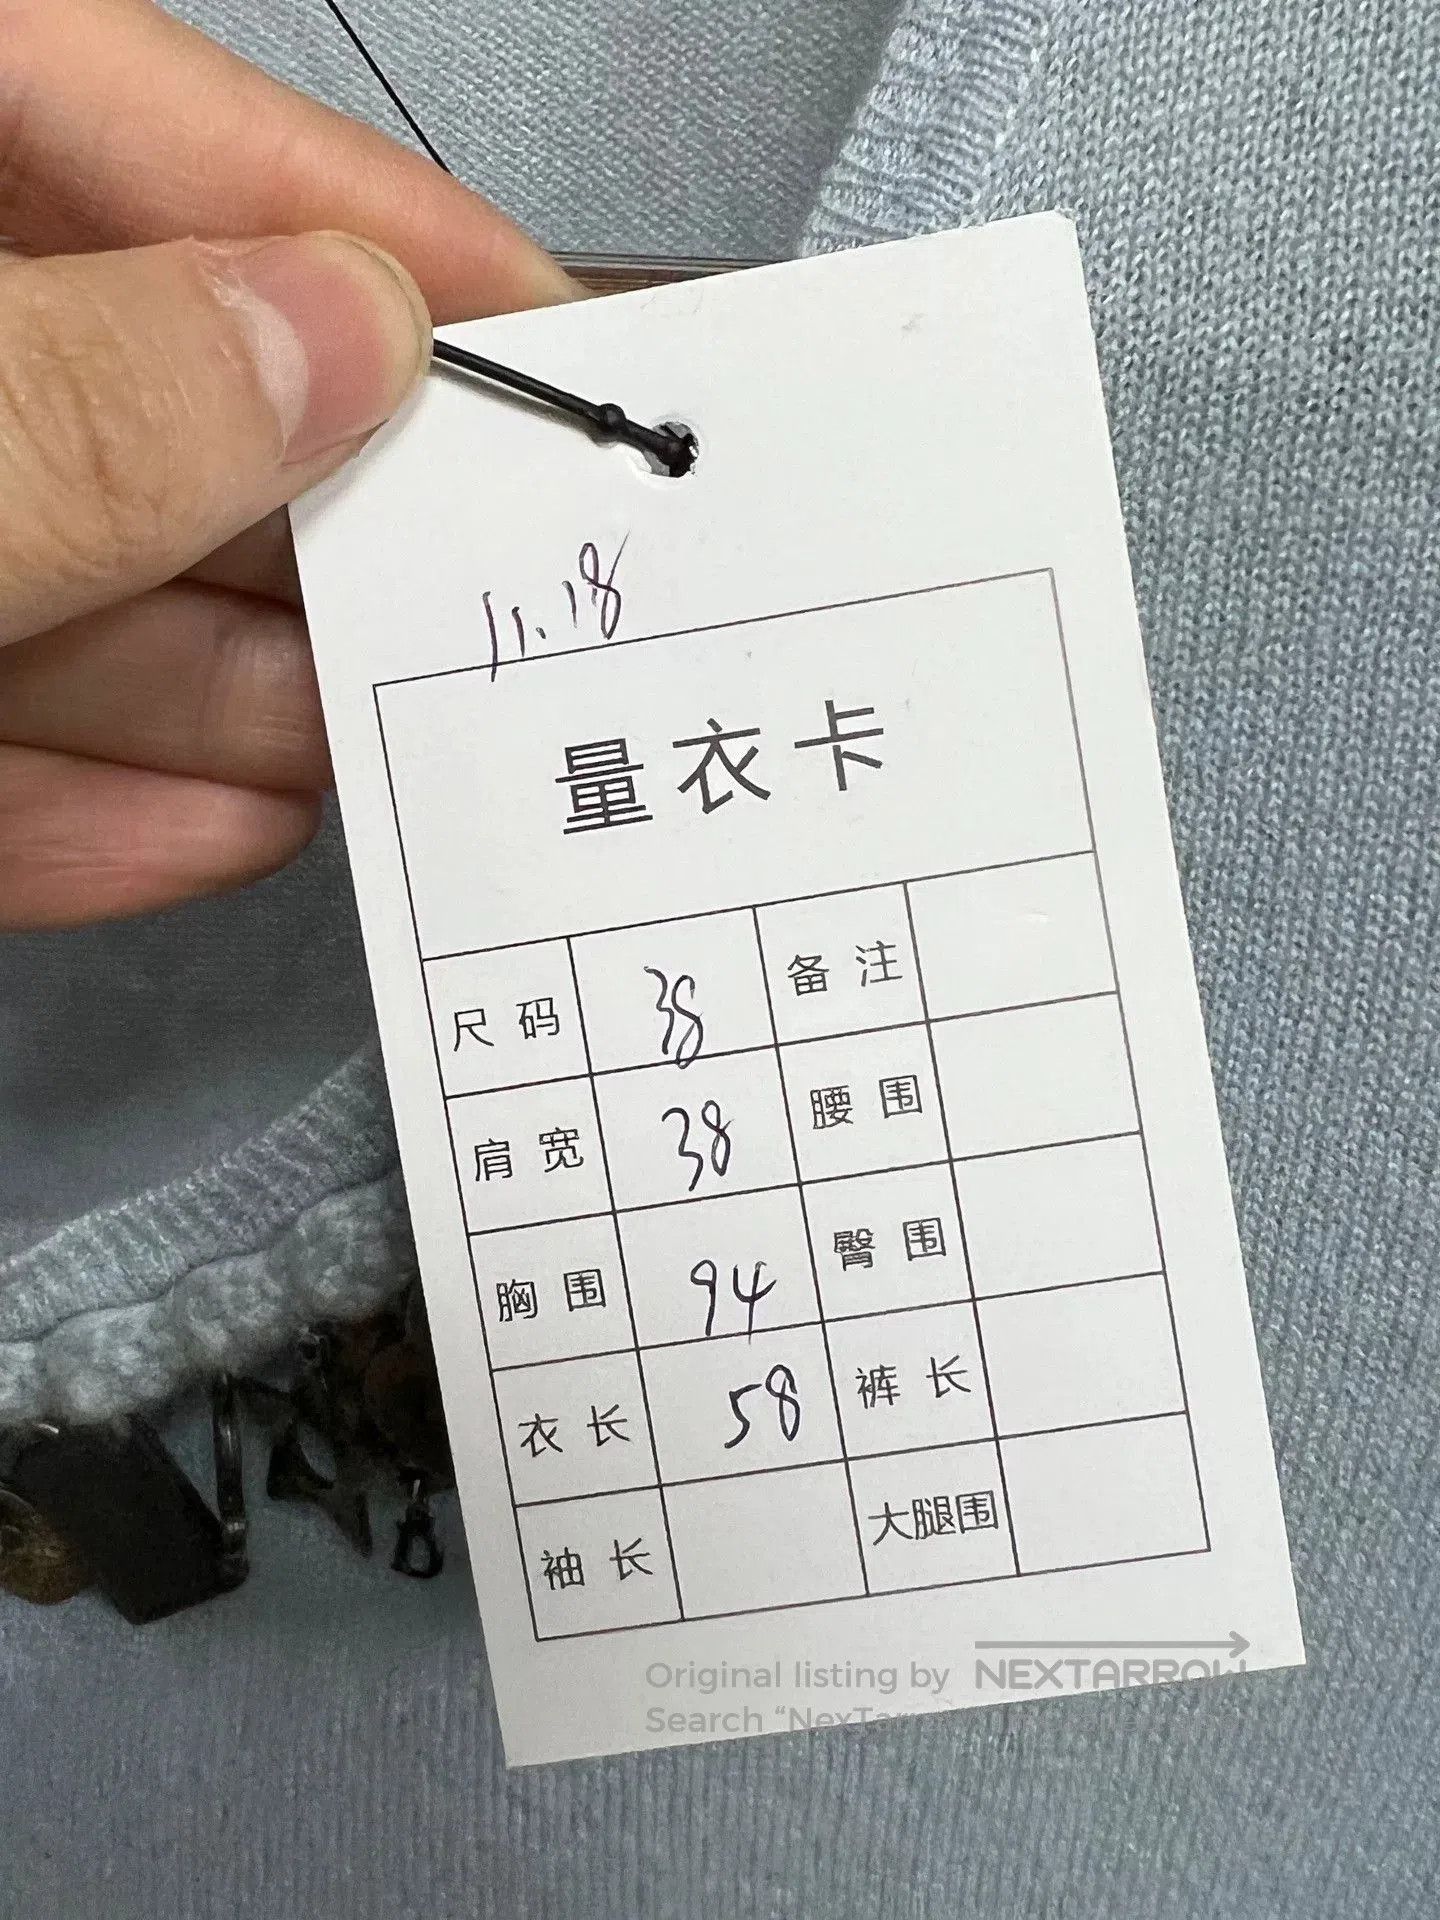 11.18
量衣卡
尺码 38 备注
肩宽 38 腰围
胸围 94 臀围
衣长 58 裤长
袖长 大腿围
Original listing by NEXTARROW
Search “NexTarrow